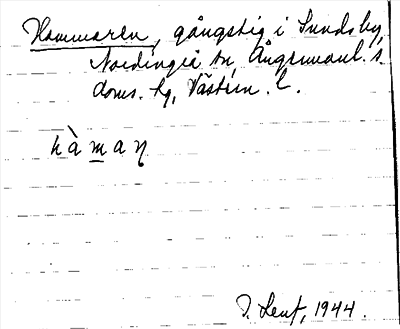 Hammaren, gångstig i Sundsby,
Nordingrå sn, Ångermanl. s.
doms. hg, Västern. l.
hàmaŋ
D. Lent, 1944.